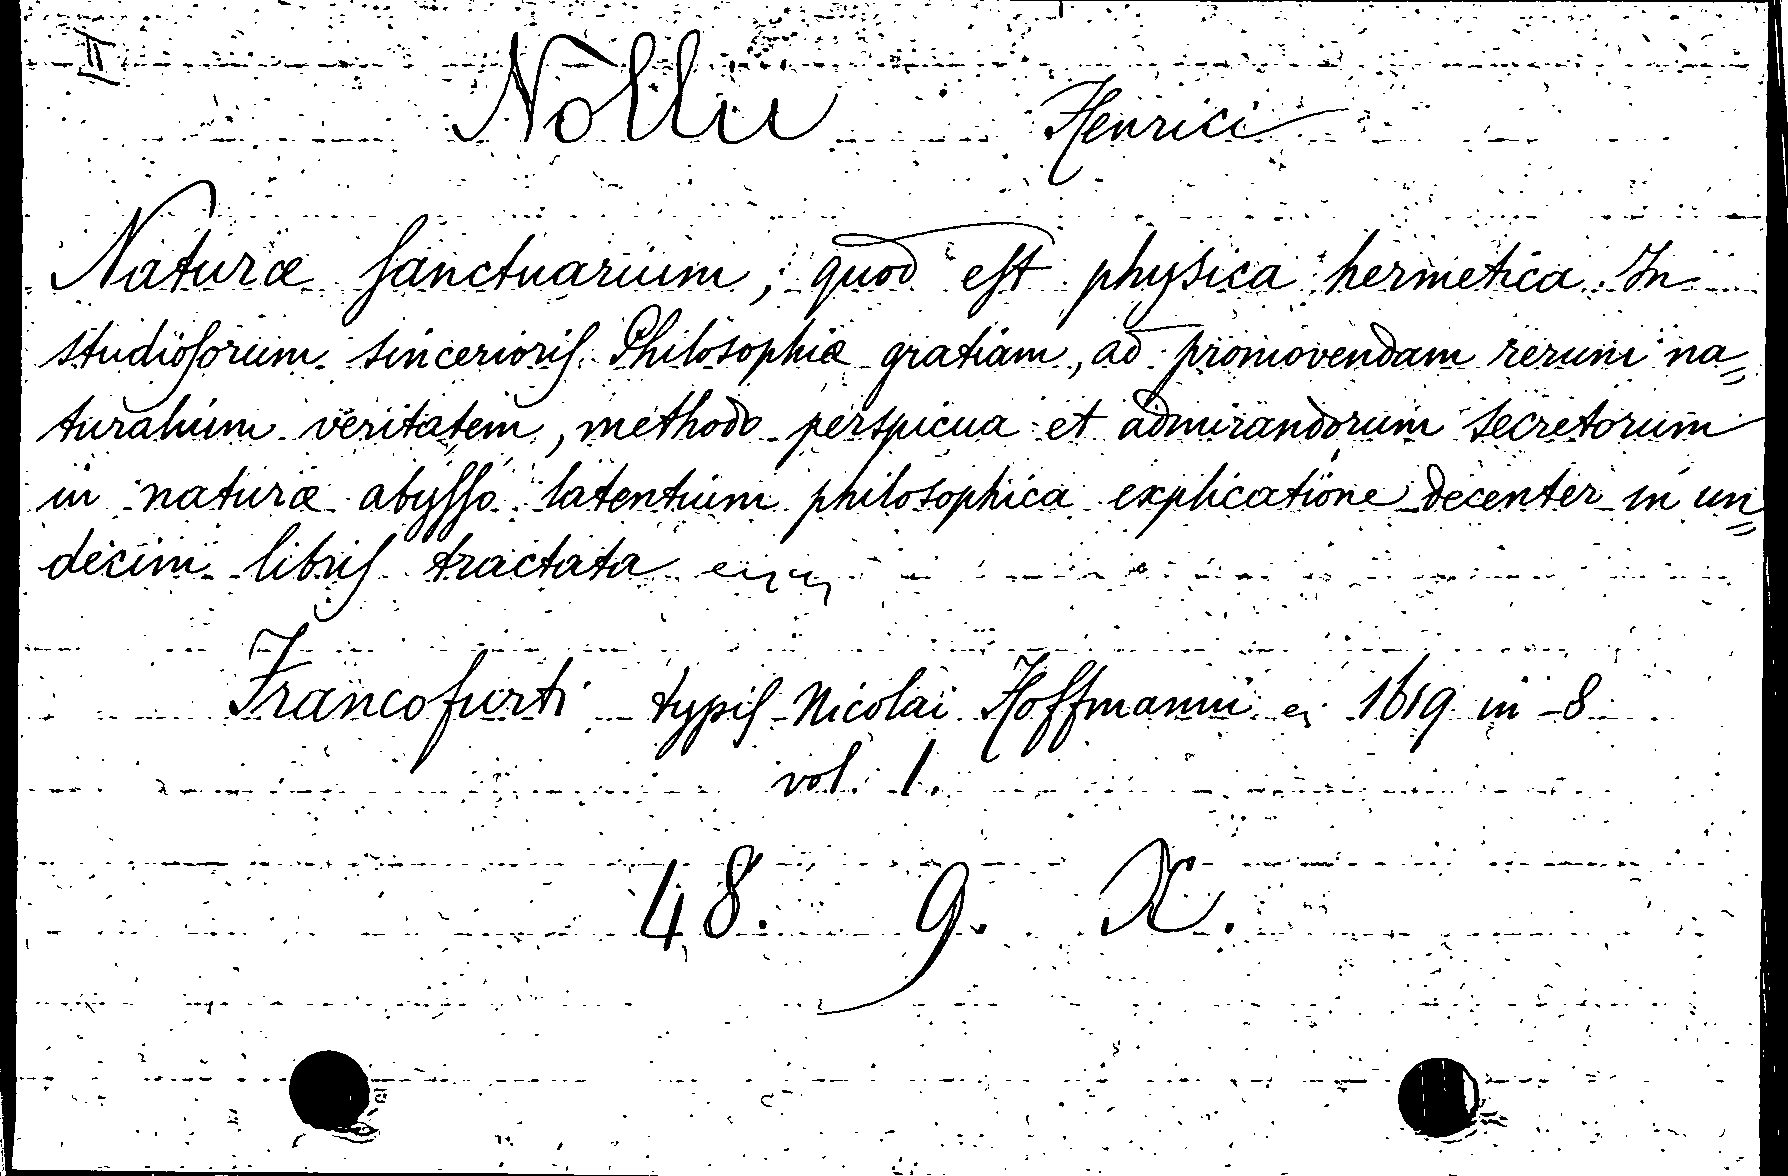 II
Nollii Henrici
Naturæ sanctuarium, quod est physica hermetica. In
studiosorum sincerioris Philosophiæ gratiam, ad promovendam rerum na=
turalium veritatem, methodo perspicua et admirandorum secretorum
in naturæ abysso latentium philosophica explicatione decenter in un=
decim libris tractata
Francofurti typis Nicolai Hoffmanni 1619 in 8
vol. 1.
48. 9. X.